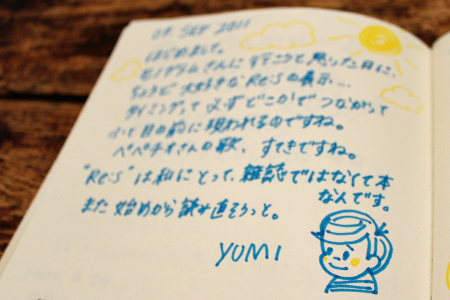 04 SEP 2011
はじめまして。
モノグラムさんに行こうと思った日に、
ちょうど大好きなRe:Sの展示…
タイミングって必ずどこかでつながって
ふと目の前に現われるのですね。
ペペチオさんの歌、すてきですね。
"Re:S"は私にとって、雑誌ではなくて本
なんです。
また始めから読み直そうっと。
YUMI